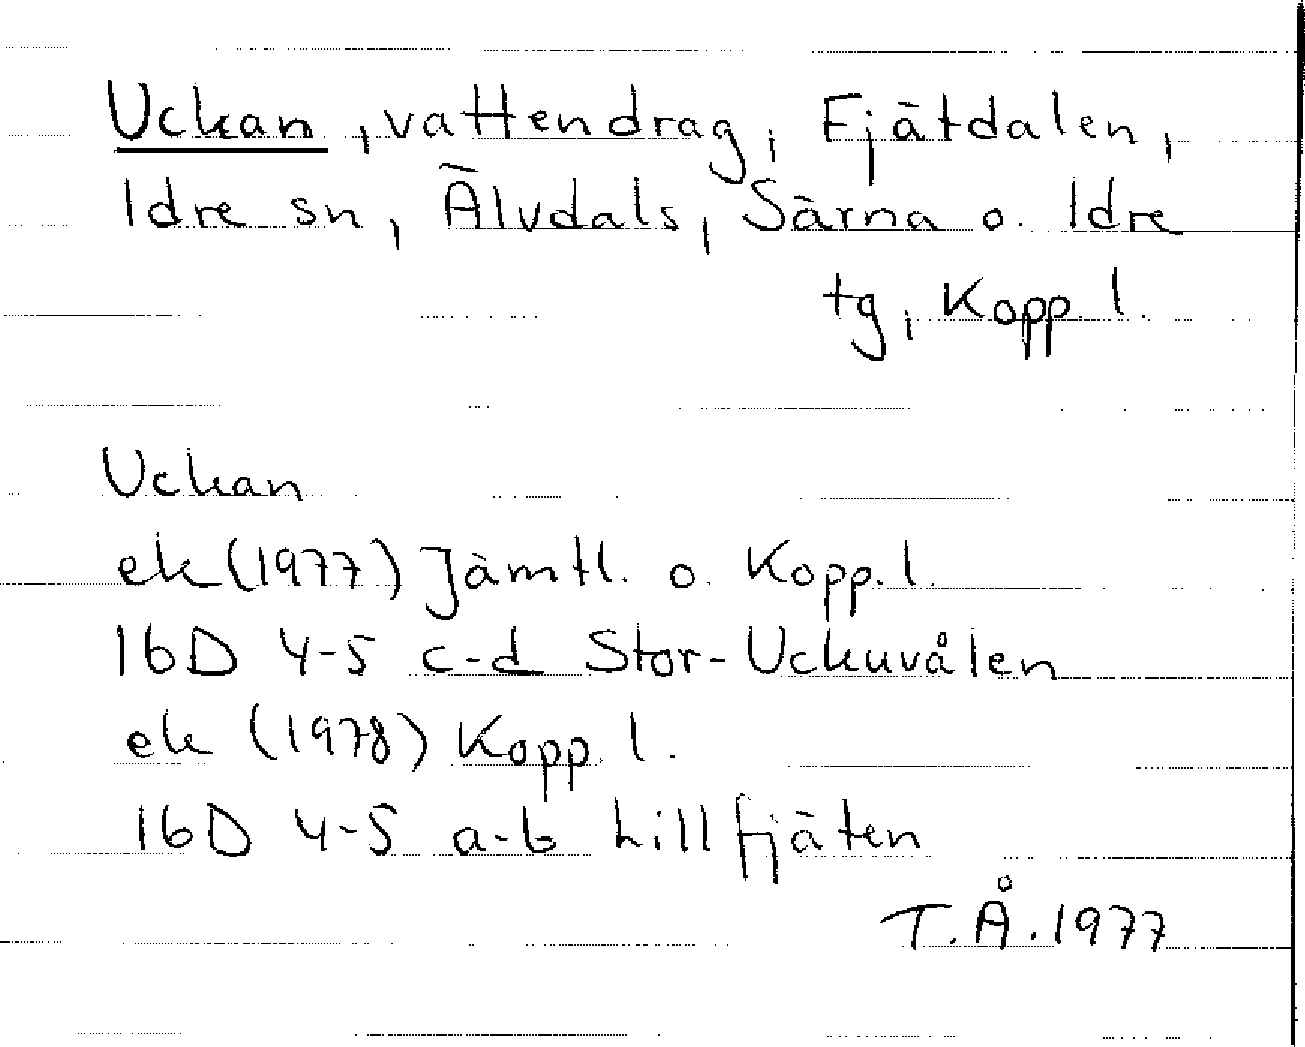 Uckan, vattendrag, Fjätdalen,
Idre sn, Älvdals, Särna o. Idre
tg, Kopp. l.
Uckan
ek (1977) Jämtl. o. Kopp. l.
16D 4-5 c-d Stor-Uckuvålen
ek (1978) Kopp. l.
16D 4-5 a-b Lillfjäten
T.Å. 1977